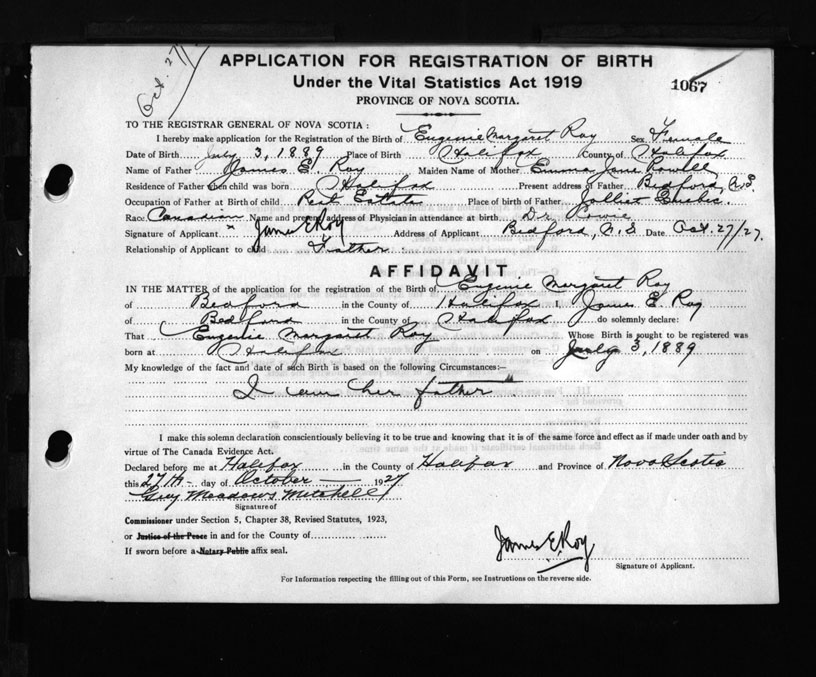 Oct. 27/
APPLICATION FOR REGISTRATION OF BIRTH
Under the Vital Statistics Act 1919
1067
PROVINCE OF NOVA SCOTIA.
TO THE REGISTRAR GENERAL OF NOVA SCOTIA :
I hereby make application for the Registration of the Birth of Eugenie Margaret Roy Sex Female
Date of Birth July 3, 1889 Place of Birth Halifax County of Halifax
Name of Father James E. Roy Maiden Name of Mother Emma Jane
Residence of Father when child was born Halifax Present address of Father Bedford, N.S.
Occupation of Father at Birth of child Real Estate Place of birth of Father Quebec
Race Canadian Name and present address of Physician in attendance at birth Dr.
Signature of Applicant x James E Roy Address of Applicant Bedford, N.S Date Oct. 27/27.
Relationship of Applicant to child Father
AFFIDAVIT
IN THE MATTER of the application for the registration of the Birth of Eugenie Margaret Roy
of Bedford in the County of Halifax I, James E. Roy
of Bedford in the County of Halifax do solemnly declare:
That Eugenie Margaret Roy Whose Birth is sought to be registered was
born at Halifax on July 3, 1889
My knowledge of the fact and date of such Birth is based on the following Circumstances:—
I am her father
I make this solemn declaration conscientiously believing it to be true and knowing that it is of the same force and effect as if made under oath and by
virtue of The Canada Evidence Act.
Declared before me at Halifax in the County of Halifax and Province of Nova Scotia
this 27th day of October 1927
Meadows Mitchell
Signature of
Commissioner under Section 5, Chapter 38, Revised Statutes, 1923,
or Justice of the Peace in and for the County of
If sworn before a Notary Public affix seal.
James E. Roy
Signature of Applicant.
For Information respecting the filling out of this Form, see Instructions on the reverse side.